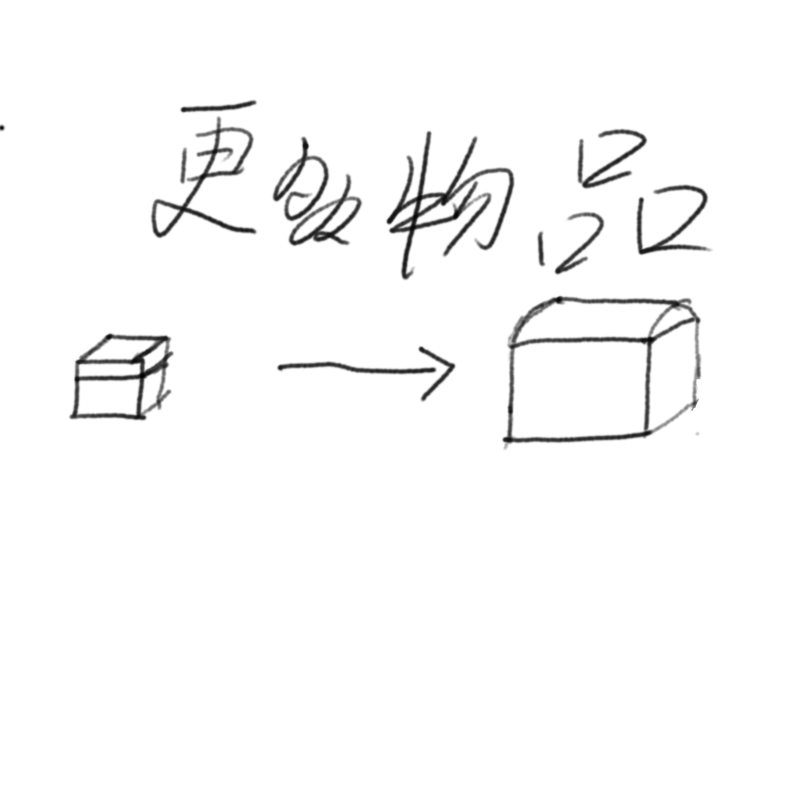 更多物品